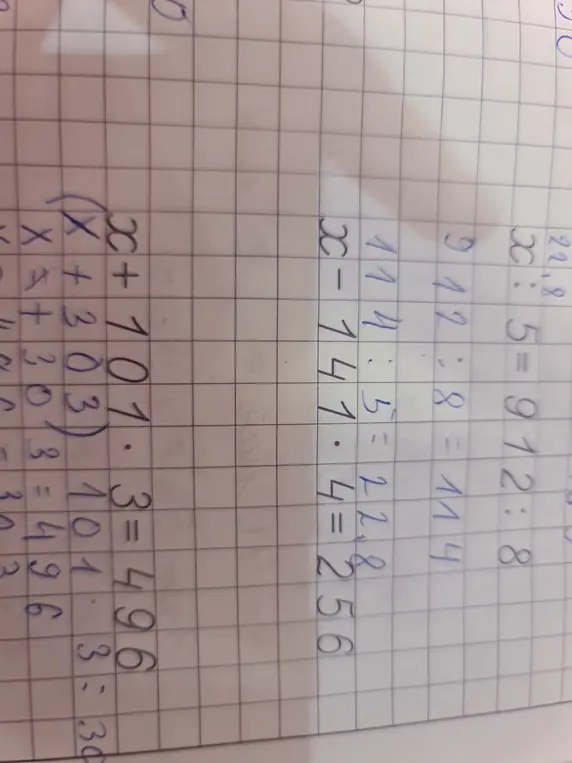 22,8
x : 5 = 912 : 8
912 : 8 = 114
114 : 5 = 22,8
x - 141 · 4 = 256
x + 101 · 3 = 496
(x + 303) 101 · 3 = 30
x + 303 = 496